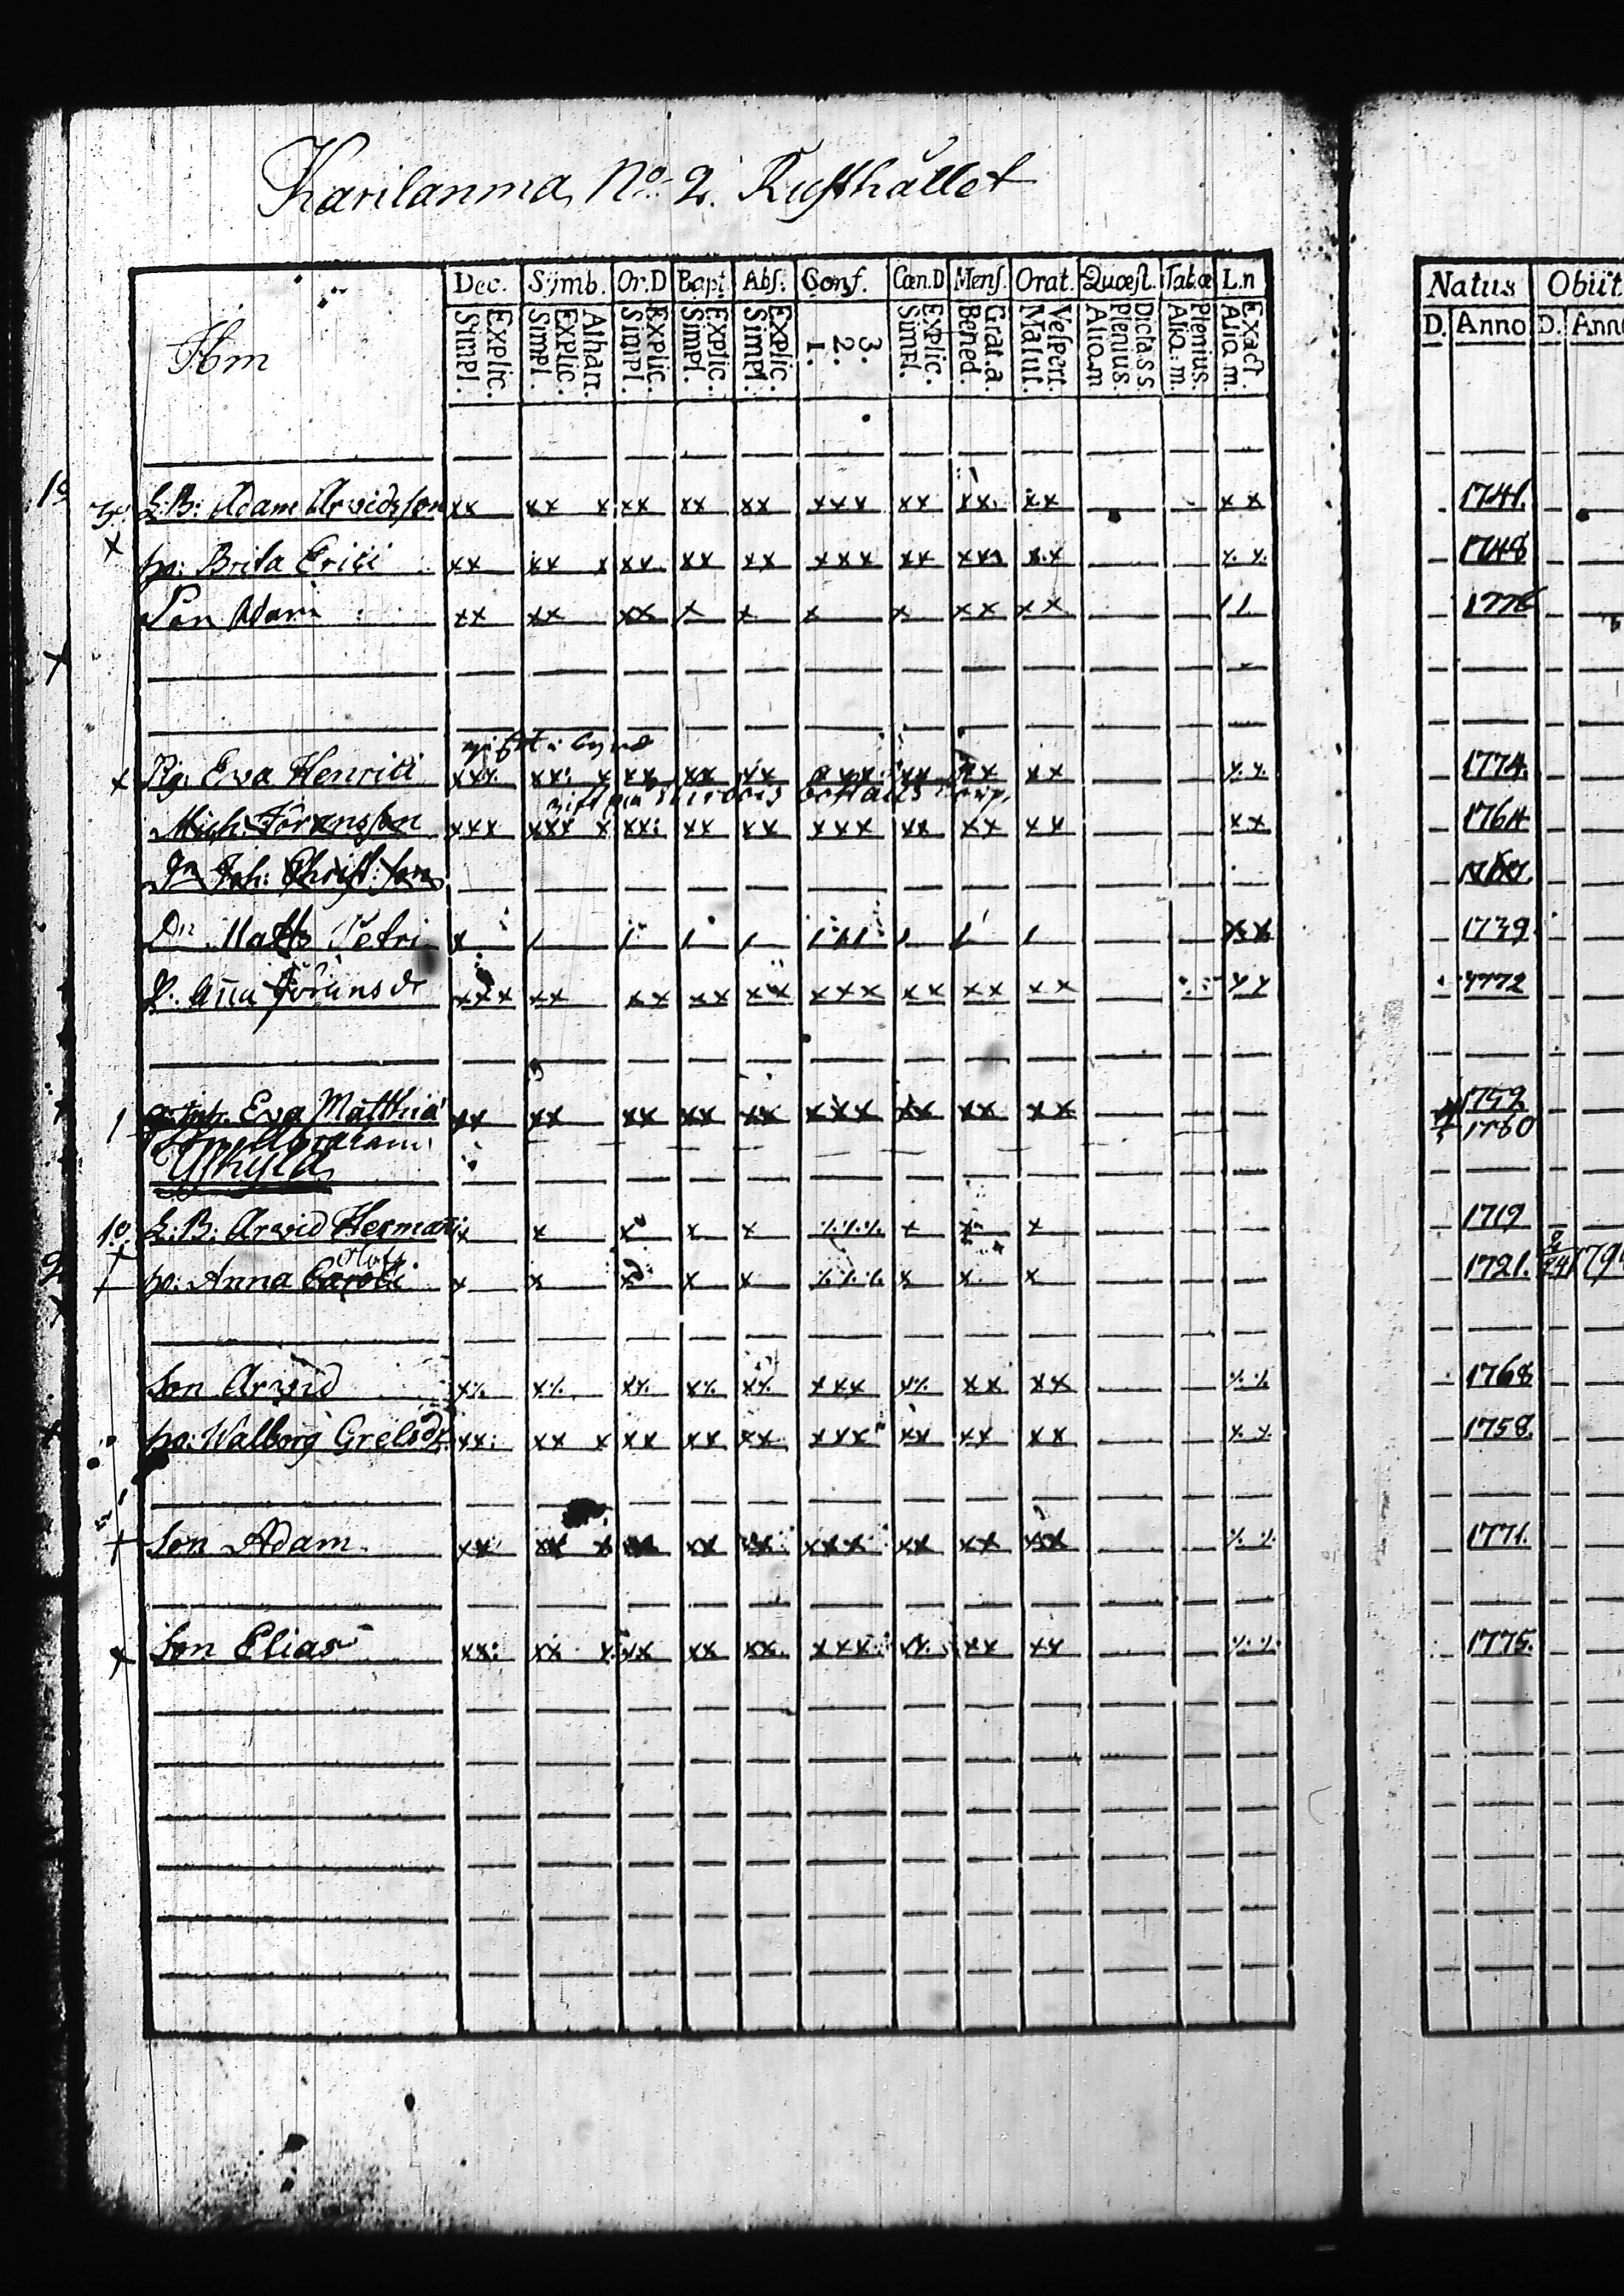 Karilanma No 2. Rusthållet
Dec. Symb. Or.D Bapt. Abs: Conf. Cœn.D Mens. Orat. Quæst. Tab.œ L.n Natus Obiit
Ibm Simpl. Explic. Simpl. Explic. Athan. Simpl. Explic. Simpl. Explic. Simpl. Explic. 1. 2. 3. Simpl. Explic. Bened. Grat.a. Matut. Vespert. Aliq.m Plenius. Dicta.s.s. Aliq.m. Plenius. Aliq.m. Exact. D. Anno D. Ann
L:B: Adam Arvidsson xx xx x xx xx xx xxx xx xx xx xx 1741.
ho: Brita Erici xx xx x xx xx xx xxx xx xxx xx 1748
Son Adam xx xx xx x x x x xx xx 1776
gift i byn
Pig. Eva Henrici xxx xx x xx xx xx xxx xx xx xx 1774.
gift
Mich: Göransson xxx xxx x xx: xx xx xxx xx xx xx xx 1764
Dn Joh: Christ: son
Dn Matts Petri x 1 1 1 1 1 1 1 1 1 1 xx 1739
P. Aña Jörans dr xxx xx xx xx xx xxx xx xx xx 1772
Eva Matthiæ xx xx xx xx xx xxx xx xx xx 1752
Abraham 1780
Yskyld
L:B: Arvid Herman x x x x x x x x 1719
ho: Anna Caroli x x x x x x x x 1721. 2/24 179
Son Arvid xxx xx xx 1768
ho: Walborg Grelsdr. xx: xx x xx xx xx xxx xx xx xx 1758.
Son Adam xx xx x xx xx xx xxx xx xx xx 1771.
Son Elias xx: xx x xx xx xx xxx xx xx 1775.